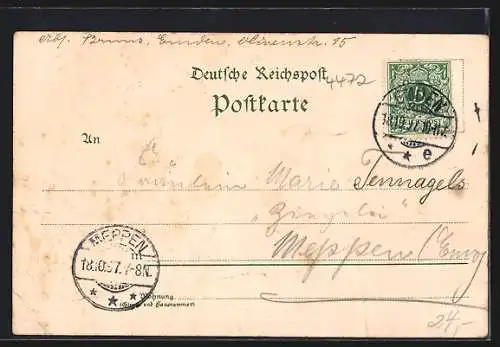 Abs. Bruns, Emden,
Deutsche Reichspost
4472
Postkarte
EMDEN
18.10.97.10-11.V.
* * e
An
Fräulein Maria Tennagels
Meppen (Ems)
MEPPEN
18.10.97.7-8N.
* * *
Wohnung
(Straße und Hausnummer)
24,-